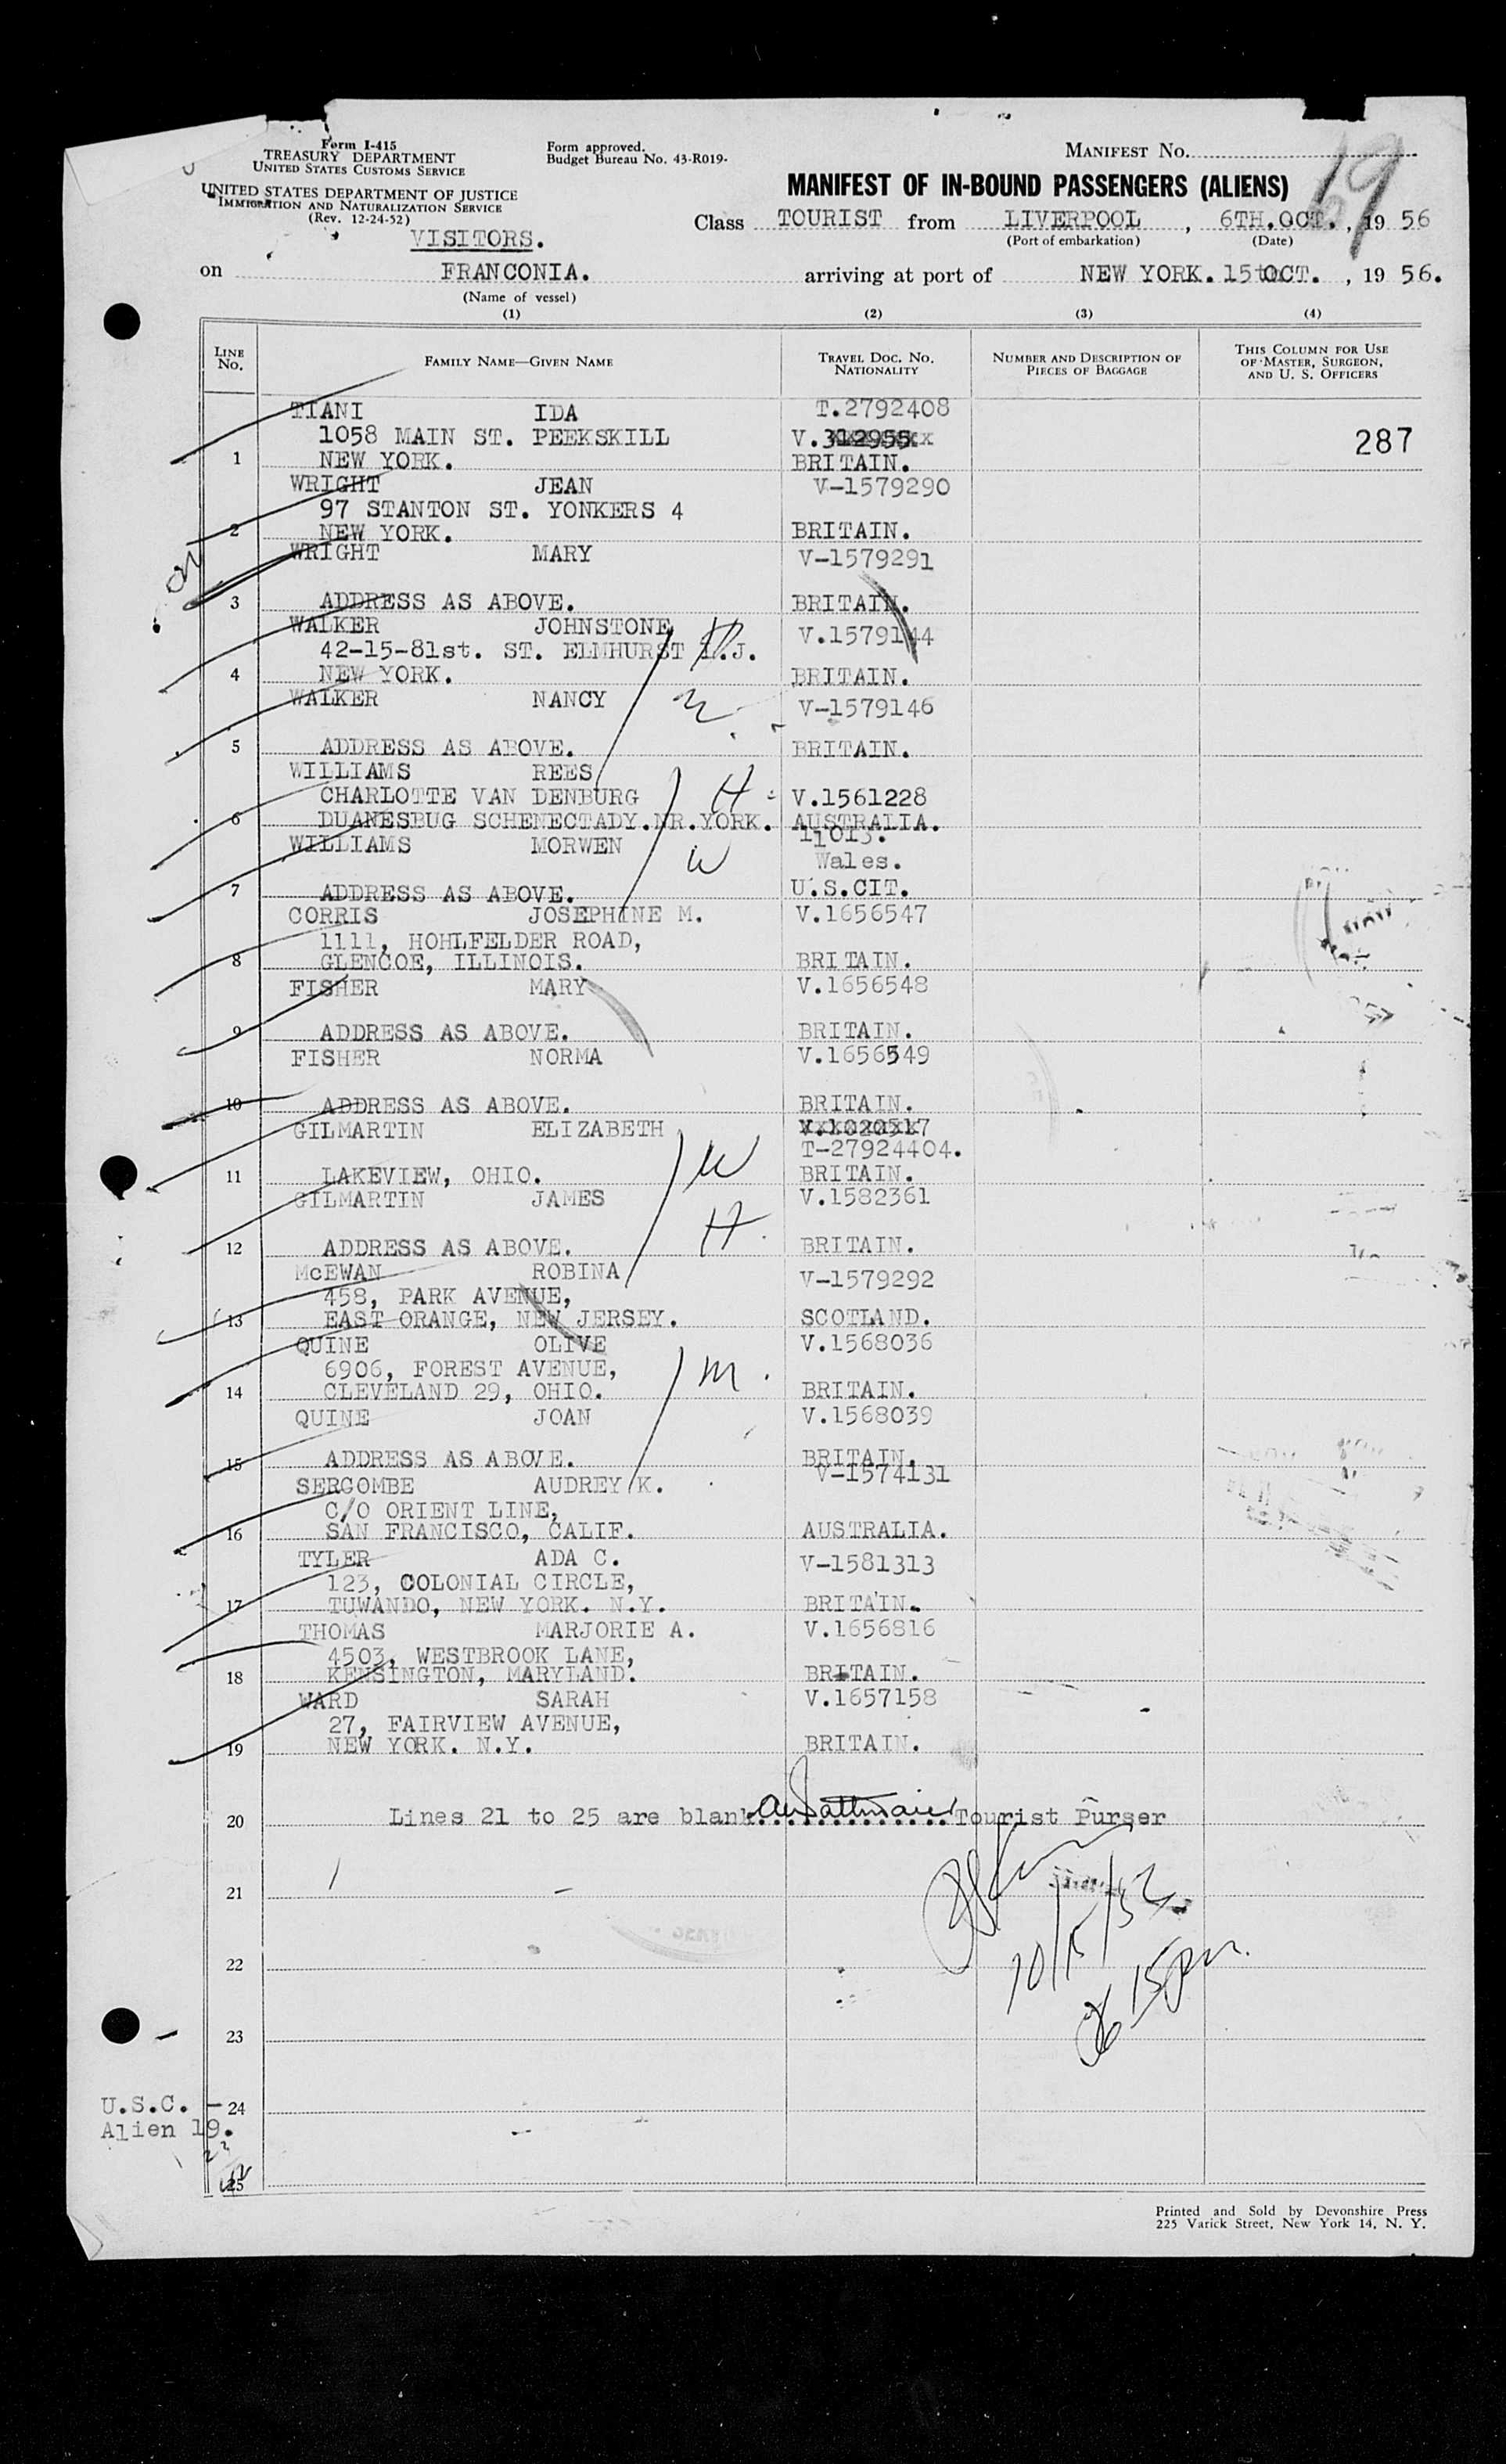 Form I-415
TREASURY DEPARTMENT
UNITED STATES CUSTOMS SERVICE
UNITED STATES DEPARTMENT OF JUSTICE
IMMIGRATION AND NATURALIZATION SERVICE
(Rev. 12-24-52)
VISITORS.
Form approved.
Budget Bureau No. 43-R019-
MANIFEST No.
69
MANIFEST OF IN-BOUND PASSENGERS (ALIENS)
Class TOURIST from LIVERPOOL, 6TH.OCT., 19 56
(Port of embarkation) (Date)
on FRANCONIA. arriving at port of NEW YORK. 15th OCT., 19 56.
(Name of vessel)
(1) (2) (3) (4)
LINE No. FAMILY NAME—GIVEN NAME TRAVEL DOC. No. NATIONALITY NUMBER AND DESCRIPTION OF PIECES OF BAGGAGE THIS COLUMN FOR USE OF MASTER, SURGEON, AND U. S. OFFICERS
TIANI IDA T.2792408
1058 MAIN ST. PEEKSKILL V.312955. 287
1 NEW YORK. BRITAIN.
WRIGHT JEAN V-1579290
97 STANTON ST. YONKERS 4
2 NEW YORK. BRITAIN.
WRIGHT MARY V-1579291
3 ADDRESS AS ABOVE. BRITAIN.
WALKER JOHNSTONE H V.1579144
42-15-81st. ST. ELMHURST L.J.
4 NEW YORK. BRITAIN.
WALKER NANCY W V-1579146
5 ADDRESS AS ABOVE. BRITAIN.
WILLIAMS REES
CHARLOTTE VAN DENBURG H V.1561228
6 DUANESBUG SCHENECTADY.NR.YORK. AUSTRALIA.
11013.
WILLIAMS MORWEN W Wales.
7 ADDRESS AS ABOVE. U.S.CIT.
CORRIS JOSEPHINE M. V.1656547
1111, HOHLFELDER ROAD,
8 GLENCOE, ILLINOIS. BRITAIN.
FISHER MARY V.1656548
9 ADDRESS AS ABOVE. BRITAIN.
FISHER NORMA V.1656549
10 ADDRESS AS ABOVE. BRITAIN.
GILMARTIN ELIZABETH V.1020517
T-27924404.
11 LAKEVIEW, OHIO. W BRITAIN.
GILMARTIN JAMES H. V.1582361
12 ADDRESS AS ABOVE. BRITAIN.
McEWAN ROBINA V-1579292
458, PARK AVENUE,
13 EAST ORANGE, NEW JERSEY. SCOTLAND.
QUINE OLIVE V.1568036
6906, FOREST AVENUE, M.
14 CLEVELAND 29, OHIO. BRITAIN.
QUINE JOAN V.1568039
15 ADDRESS AS ABOVE. BRITAIN.
SERCOMBE AUDREY K. V-1574131
C/O ORIENT LINE,
16 SAN FRANCISCO, CALIF. AUSTRALIA.
TYLER ADA C. V-1581313
123, COLONIAL CIRCLE,
17 TUWANDO, NEW YORK. N.Y. BRITAIN.
THOMAS MARJORIE A. V.1656816
4503, WESTBROOK LANE,
18 KENSINGTON, MARYLAND. BRITAIN.
WARD SARAH V.1657158
27, FAIRVIEW AVENUE,
19 NEW YORK. N.Y. BRITAIN.
20 Lines 21 to 25 are blank Tourist Purser
21
22
23
U.S.C. - 24
Alien 19.
25
Printed and Sold by Devonshire Press
225 Varick Street, New York 14, N. Y.